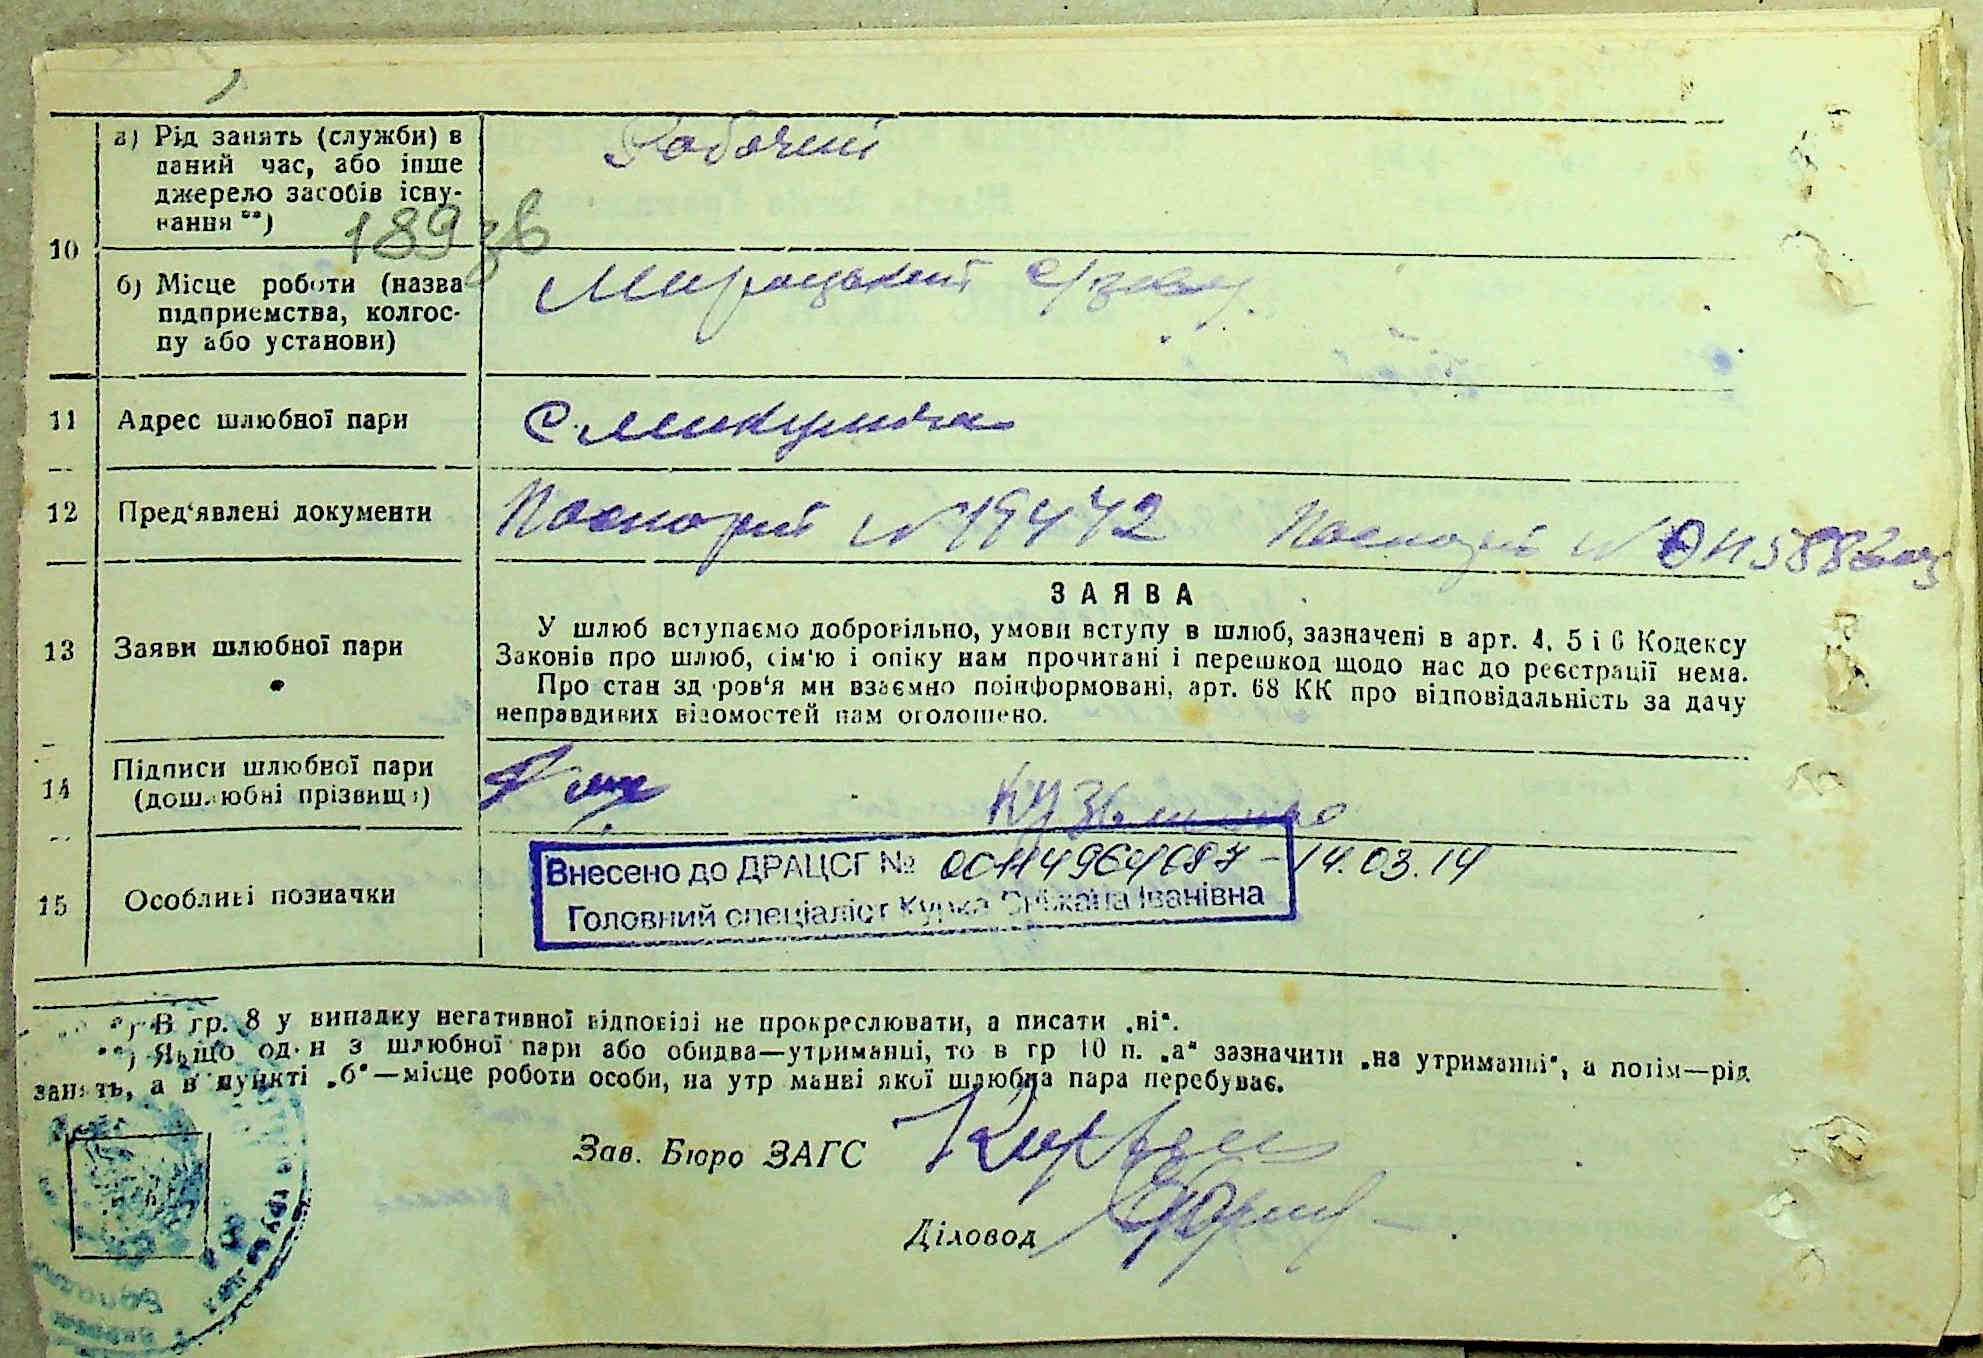 189 зв
10
а) Рід занять (служби) в
даний час, або інше
джерело засобів існу-
вання **)
Рабочий
б) Місце роботи (назва
підприємства, колгос-
пу або установи)
Мироцький с/завод
11 Адрес шлюбної пари
с. Микуличи
12 Пред'явлені документи
Паспорт № 19442 Паспорт №
ЗАЯВА
13 Заяви шлюбної пари
У шлюб вступаємо добровільно, умови вступу в шлюб, зазначені в арт. 4, 5 і 6 Кодексу
Законів про шлюб, сім'ю і опіку нам прочитані і перешкод щодо нас до реєстрації нема.
Про стан здоров'я ми взаємно поінформовані, арт. 68 КК про відповідальність за дачу
неправдивих відомостей нам оголошено.
14 Підписи шлюбної пари
(дошлюбні прізвища)
Кузьменко
15 Особливі позначки
Внесено до ДРАЦСГ № 00114964687 - 14.03.14
Головний спеціаліст Курка Сніжана Іванівна
*) В гр. 8 у випадку негативної відповіді не прокреслювати, а писати „ні“.
**) Якщо один з шлюбної пари або обидва—утриманці, то в гр 10 п. „а“ зазначити „на утриманні“, а потім—рід
занять, а в пункті „б“—місце роботи особи, на утриманні якої шлюбна пара перебуває.
Зав. Бюро ЗАГС
Діловод